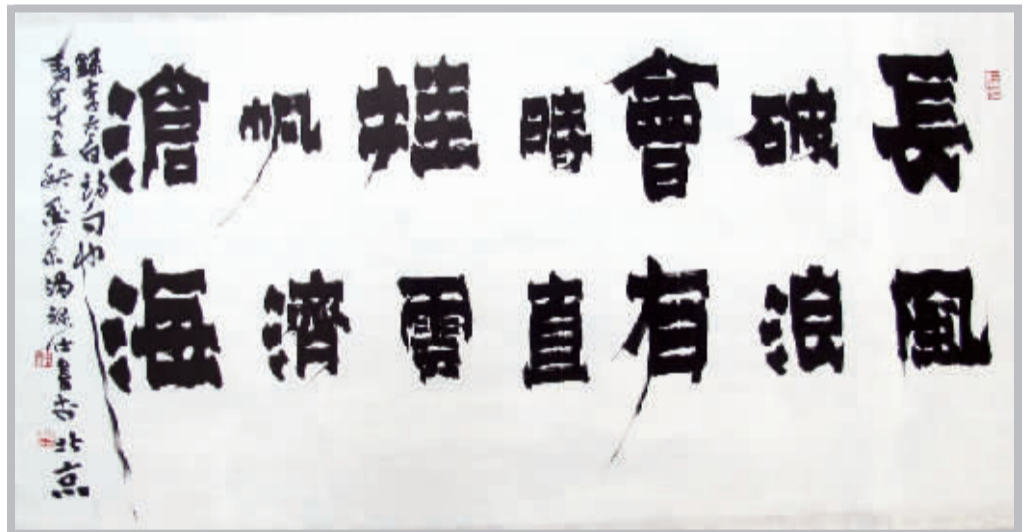 長風
破浪
會有
時直
挂雲
帆濟
滄海
錄李太白詩句也
書於北京